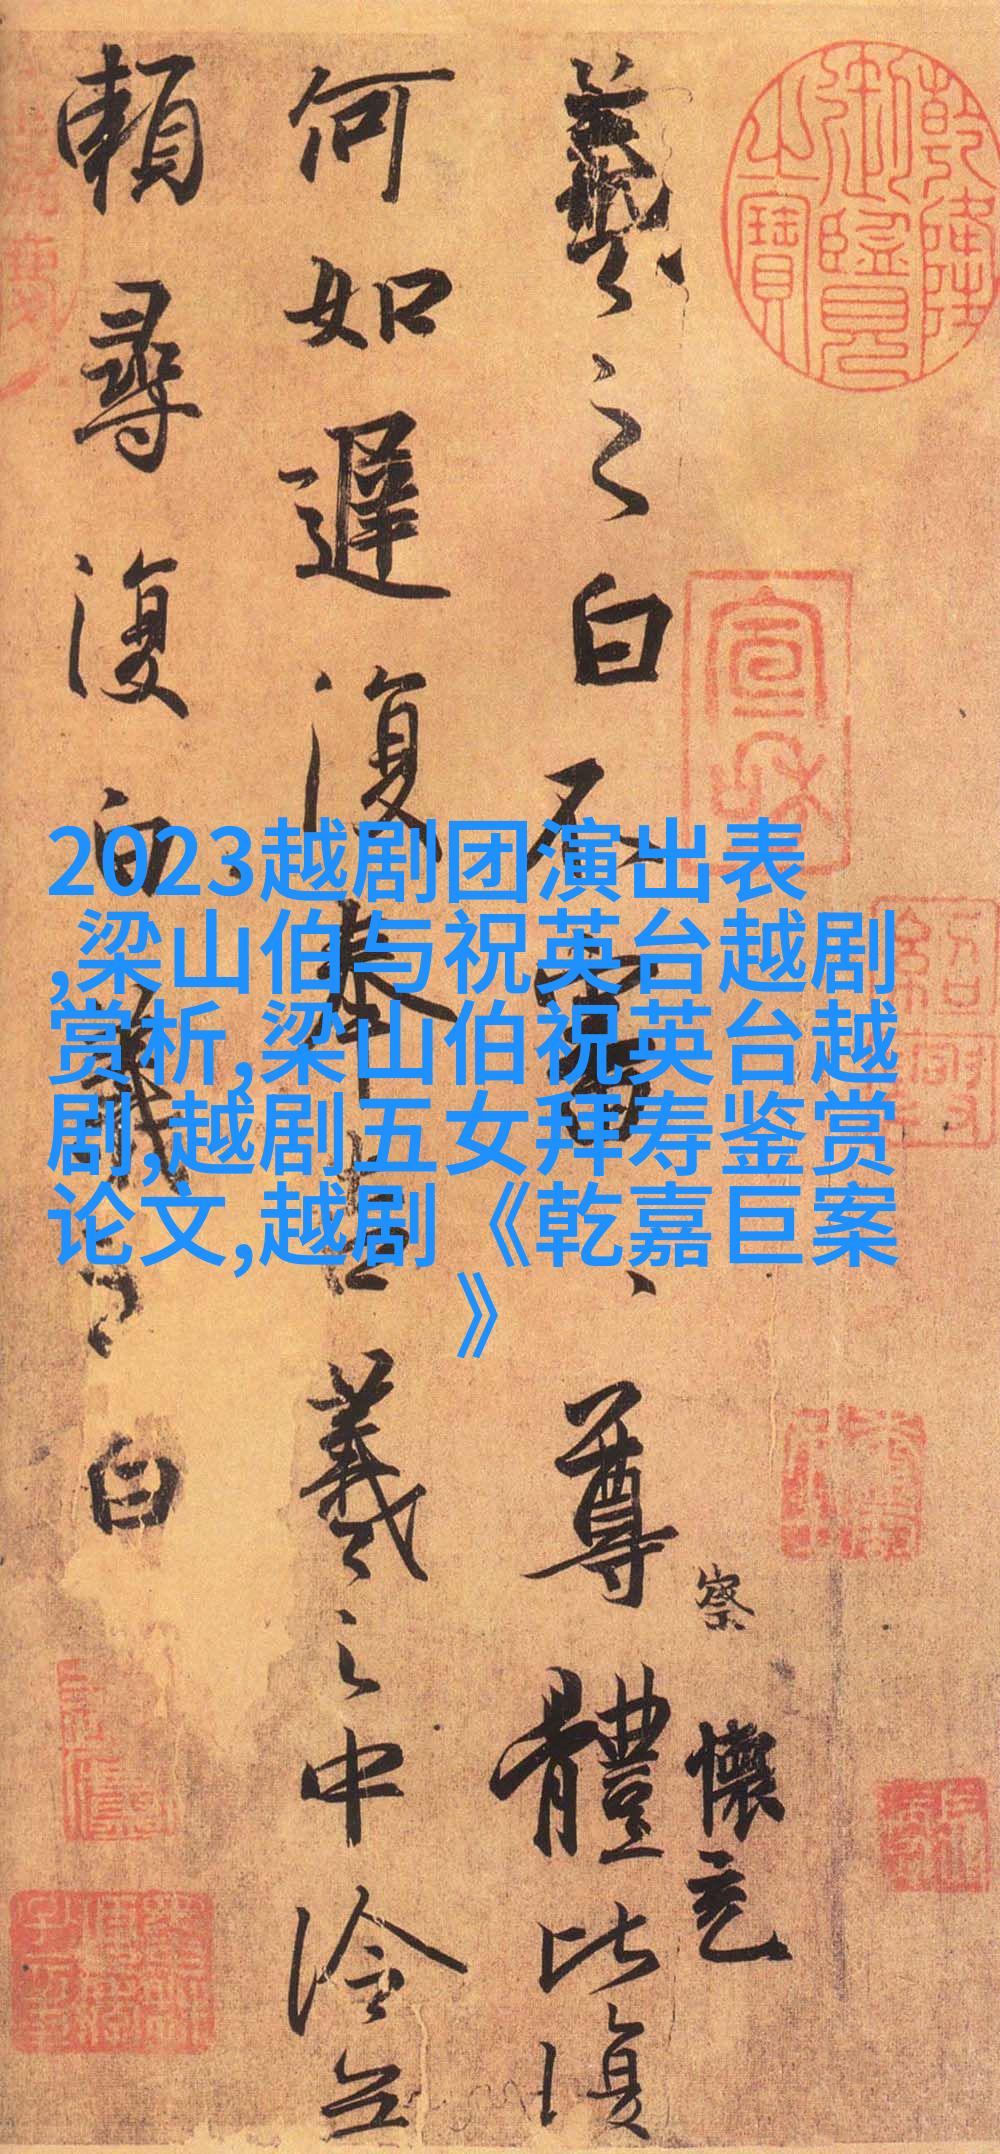 2023越剧团演出表
,梁山伯与祝英台越剧
赏析,梁山伯祝英台越
剧,越剧五女拜寿鉴赏
论文,越剧《乾嘉巨案
》
乾隆御覽之寶
宣和
察
懷充
羲之白不審尊體比復
何如遲復奉告羲之中冷無
賴尋復白羲之白